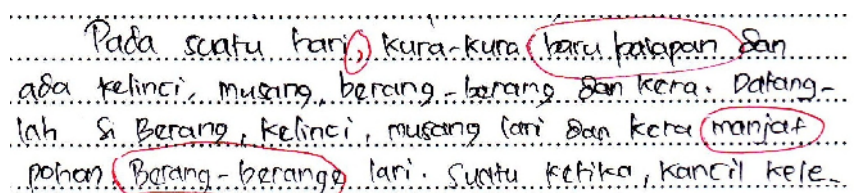 Pada suatu hari, kura-kura baru balapan dan
ada kelinci, musang, berang-berang dan kera. Datang-
lah si Berang, kelinci, musang lari dan kera manjat
pohon Berang-berang lari. Suatu ketika, kancil kele-